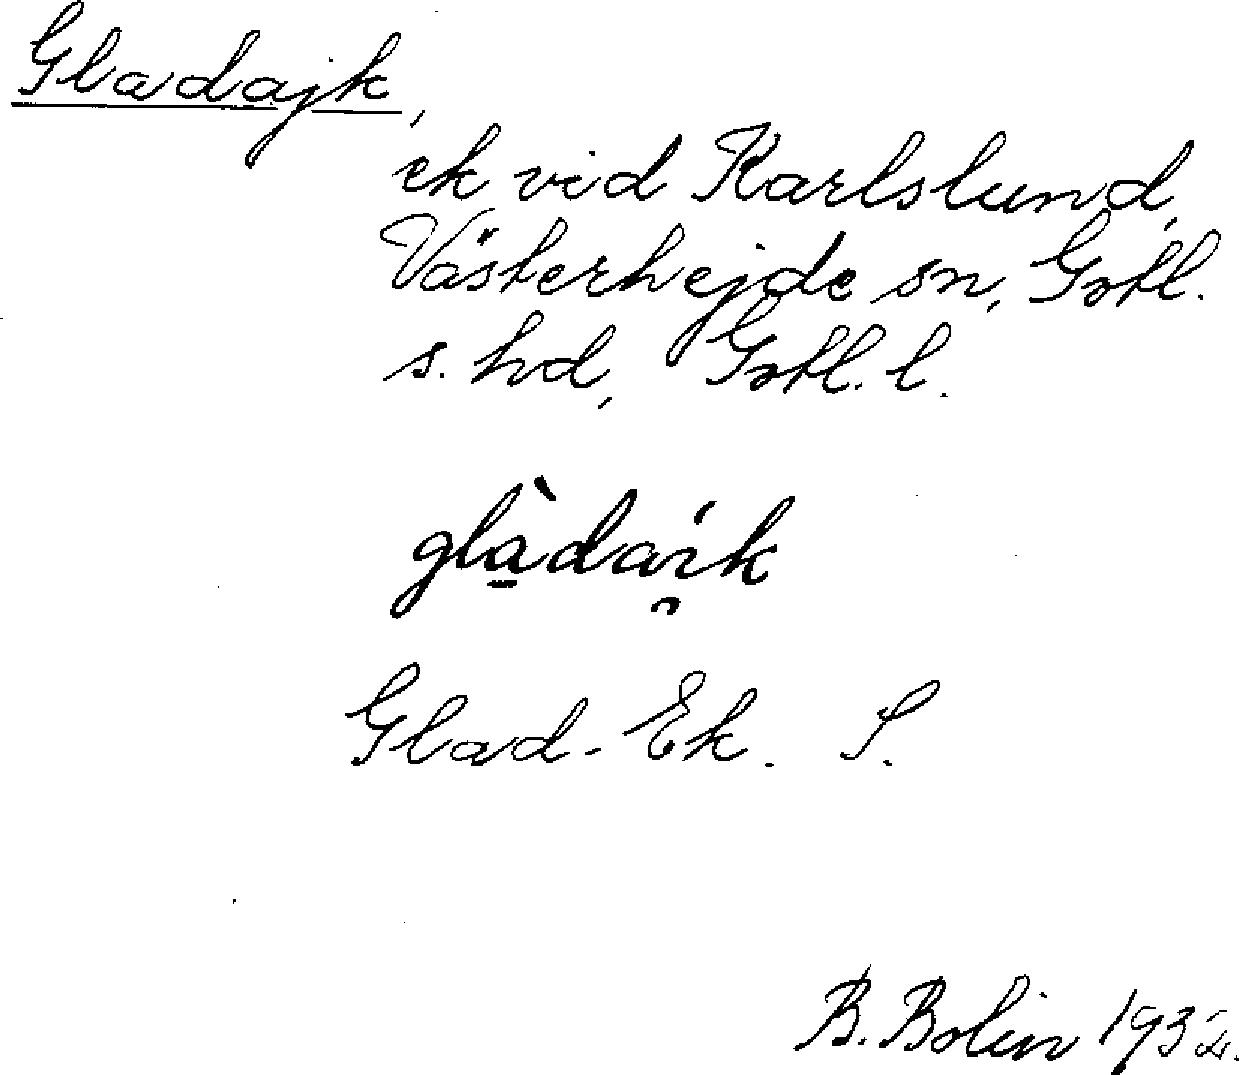 Gladajk,
ek vid Karlslund,
Västerhejde sn, Gotl.
s. hd, Gotl. l.
glа̱̀dai̯k
Glad-Ek. S.
B. Bolin 1932.